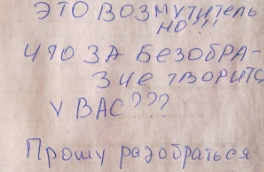 ЭТО ВОЗМУТИТЕЛЬ
НО!!!
ЧТО ЗА БЕЗОБРА-
ЗИЕ ТВОРИТС
У ВАС???
Прошу разобраться